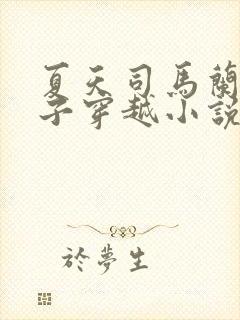 夏天司馬蘭
子穿越小說
於夢生